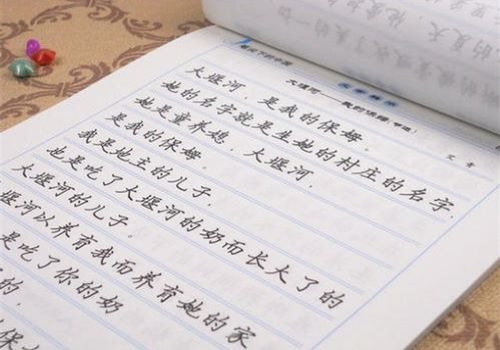 大堰河——我的保姆(节选)
艾青
大堰河,是我的保姆。
她的名字就是生她的村庄的名字,
她是童养媳,大堰河,
是我的保姆。
我是地主的儿子,
也是吃了大堰河的奶而长大了的
大堰河的儿子。
堰河以养育我而养育她的家
是吃了你的奶
的,